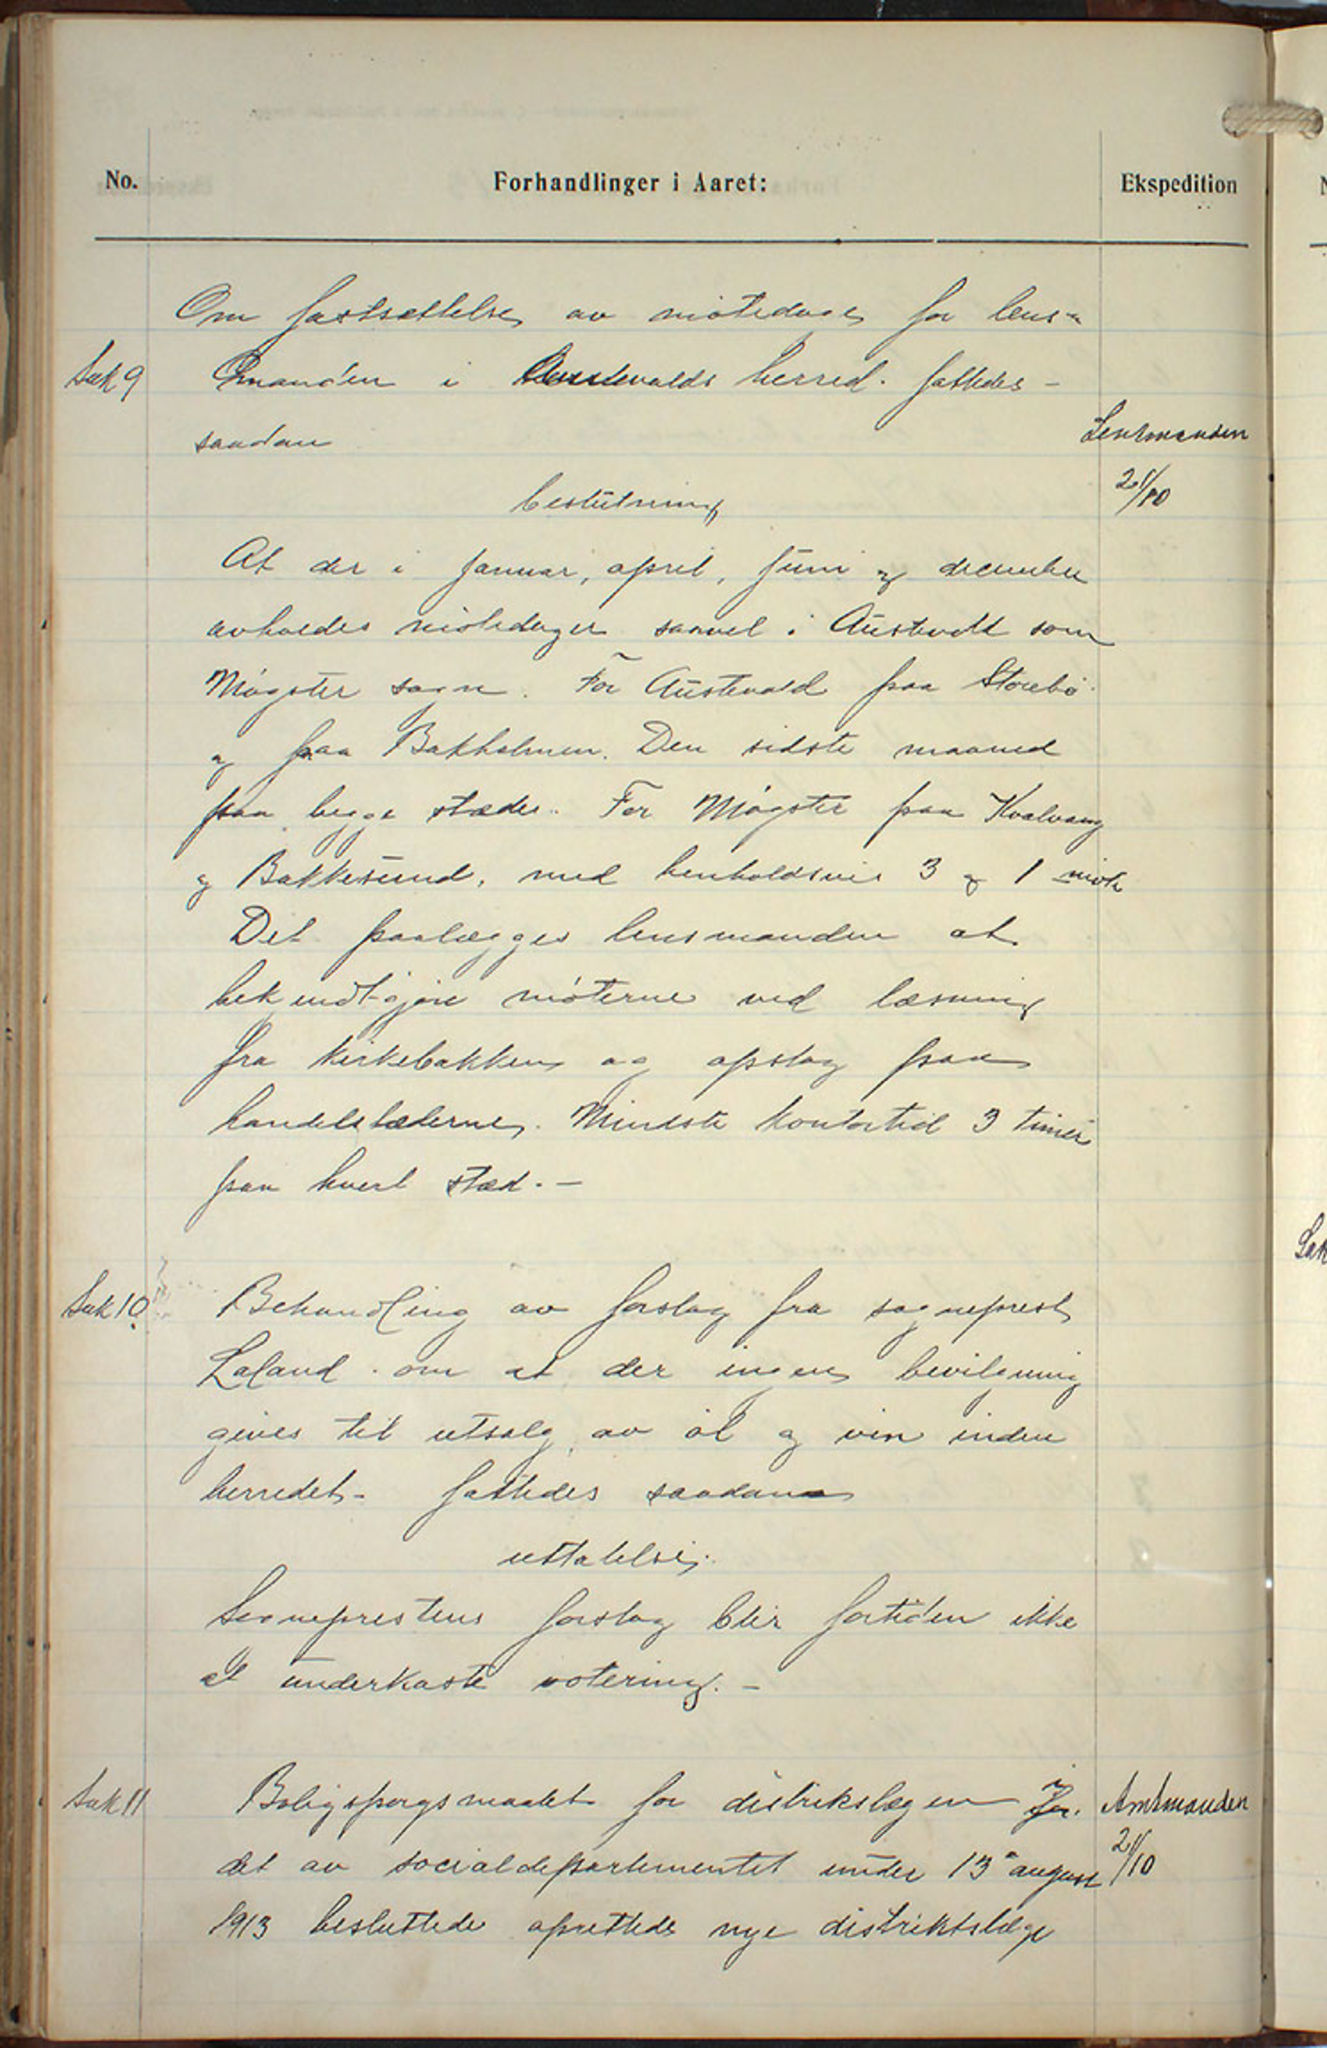 No. Forhandlinger i Aaret: Ekspedition
Om fastsættelse av mötedage for lens-
Sak 9 manden i Austevolds herred. fattedes -
saadan Lensmanden
beslutning 21/10
At der i januar, april, juni og december
avholdes mötedager saavel i Austevold som
Møgster sogn. For Austevold paa Storebö
og paa Bakholmen. Den sidste maaned
paa begge stæder. For Møgster paa Kvalvaag
og Bakkesund, med henholdsvis 3 og 1 möte
Det paalægges lensmanden at
bekjendtgjøre møterne ved læsning
fra kirkebakken og opslag paa
handelstæderne. Mindste kontortid 3 timer
paa hvert stæd. -
Sak 10. Behandling av forslag fra sogneprest
Laland om at der ingen bevilgning
gives til utsalg av öl og vin inden
herredet - fattedes saadan
uttalelse.
Sogneprestens forslag blir fortiden ikke
at underkaste votering. -
Sak 11 Boligspørgsmaalet for distrikslægen i Amtmanden
det av socialdepartementet under 13de august 21/10
1913 besluttede oprettede nye distriktslæge
Sak